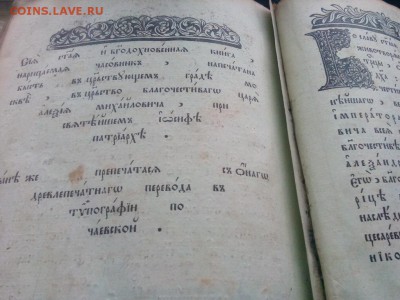 COINS.LAVE.RU
Сїѧ ст҃аѧ и бг҃одохнове́ннаѧ кни́га ,
нарица́емаѧ часо́вникъ , напеча́тана
бы́сть въ црⷭ҇твꙋ́ющемъ гра́дѣ мо
сквѣ̀ , въ ца́рство благочести́вагѡ царѧ̀
алеѯі́ѧ миха́йловича , при
свѧтѣ́йшемъ іѡ́сифѣ
патрїа́рхѣ .
же препеча́тасѧ съ ѻ́нагѡ
древлепеча́тнагѡ перево́да въ
тѷпогра́фїи по
ча́евской .
сла́вꙋ
нѣ́йшагѡ
импера́тор
вича
благочести́
Алеѯа́нд
ЕГѠ̀ благ
наслѣ́д
цесаре́в
нико